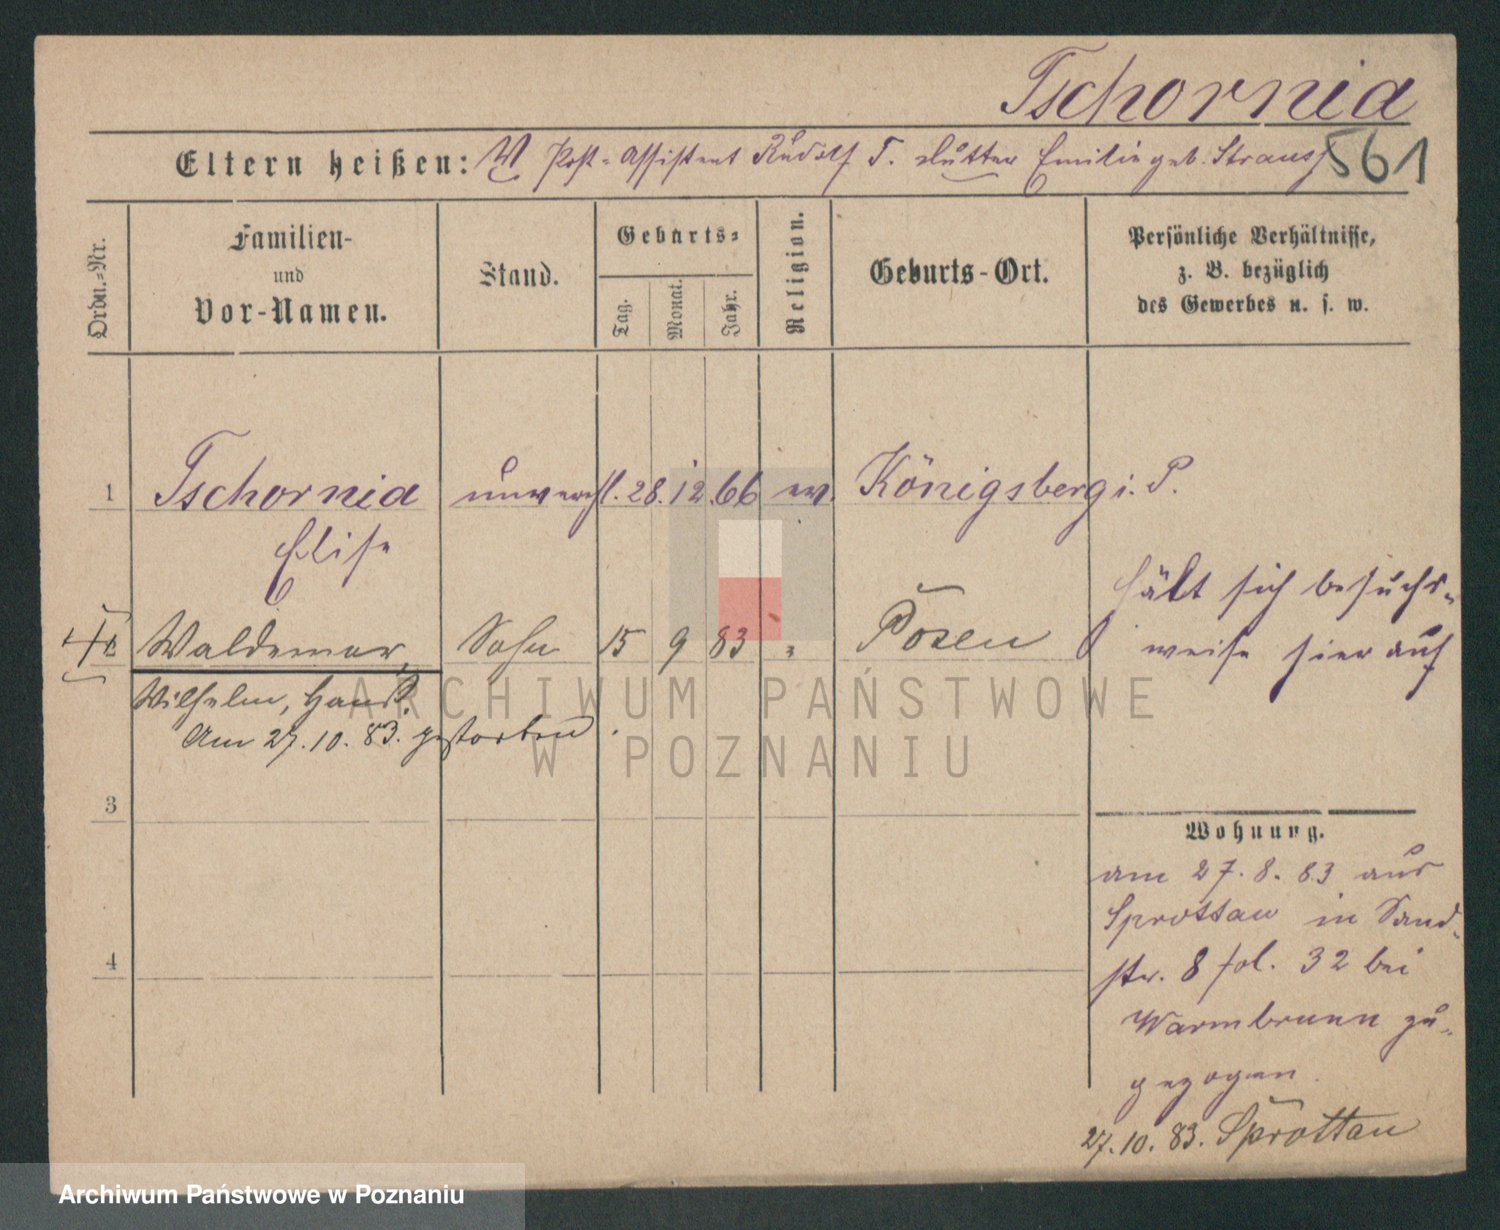 Tschornia
561
Eltern heißen: Post-Assistent Rudolf T. Mutter Emilie geb. Strauss
Ordn.-Nr.
Familien-
und
Vor-Namen.
Stand.
Geburts-
Tag.
Monat.
Jahr.
Religion.
Geburts-Ort.
Persönliche Verhältnisse,
z. B. bezüglich
des Gewerbes u. s. w.
1 Tschornia unverehl. 28. 12. 66 ev. Königsberg i. P.
Elise
hält sich besuchs-
weise hier auf
Waldemar, Sohn 15 9 83 " Posen
Wilhelm, Hans.
Am 27.10.83. gestorben.
3
4
Wohnung.
am 27.8.83 aus
Sprottau in Sand-
str. 8 fol. 32 bei
Warmbrunn zu-
gezogen.
27.10.83. Sprottau
ARCHIWUM PAŃSTWOWE
W POZNANIU
Archiwum Państwowe w Poznaniu